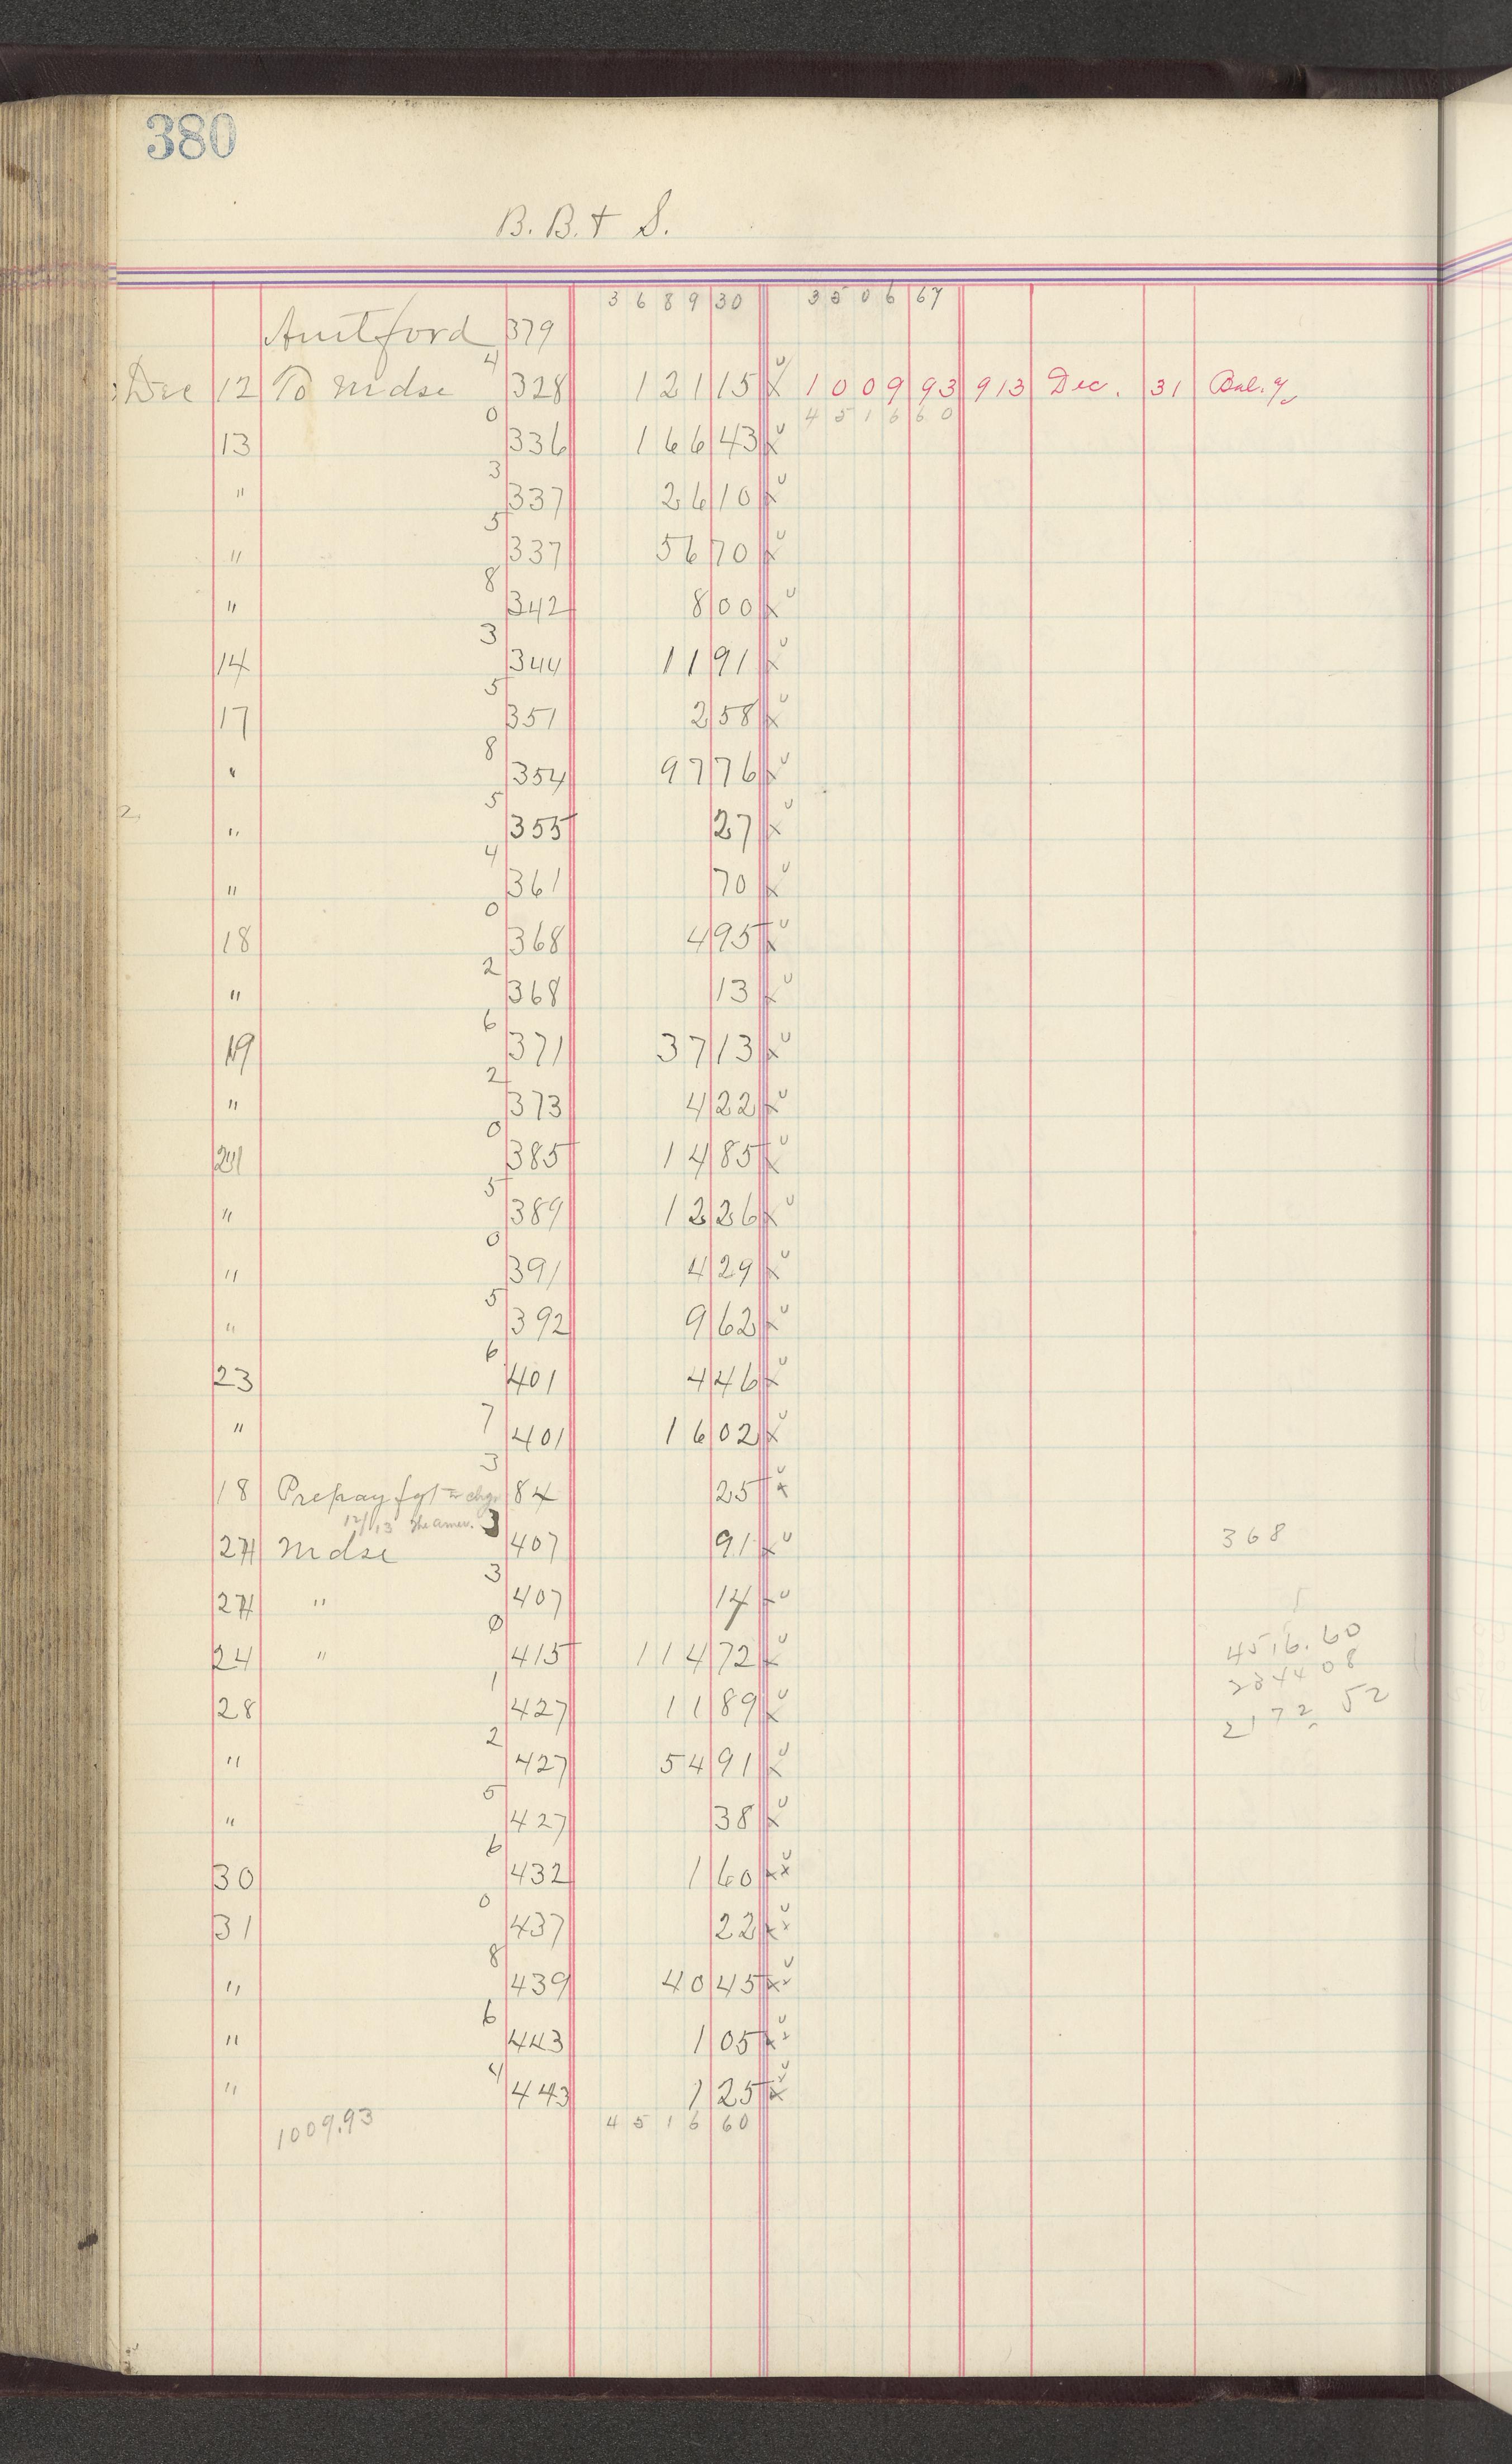 380
B. B. & S.
3689 30 3506 67
Amt ford 379
4
Dec 12 To Mdse 328 121 15 1009 93 913 Dec. 31 Bal.
0 4516 60
13 336 166 43
3
" 337 26 10
5
" 337 56 70
8
" 342 8 00
3
14 344 11 91
5
17 351 2 58
8
" 354 97 76
5
" 355 27
4
" 361 70
0
18 368 4 95
2
" 368 13
6
19 371 37 13
2
" 373 4 22
0
21 385 14 85
5
" 389 12 26
0
" 391 4 29
5
" 392 9 62
6
23 401 4 46
7
" 401 16 02
3
18 Prepay fgt chgs 84 25
12/13 3
24 Mdse 407 91 368
3
24 " 407 14
0
24 " 415 114 72 4516.60
1 2344 08
28 427 11 89 2172 52
2
" 427 54 91
5
" 427 38
6
30 432 1 60
0
31 437 22
8
" 439 40 45
6
" 443 1 05
4
" 443 1 25
1009.93 4516 60